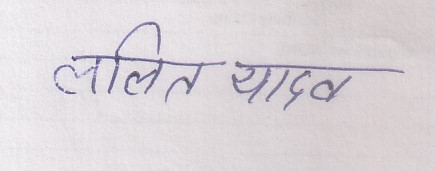 ललित यादव